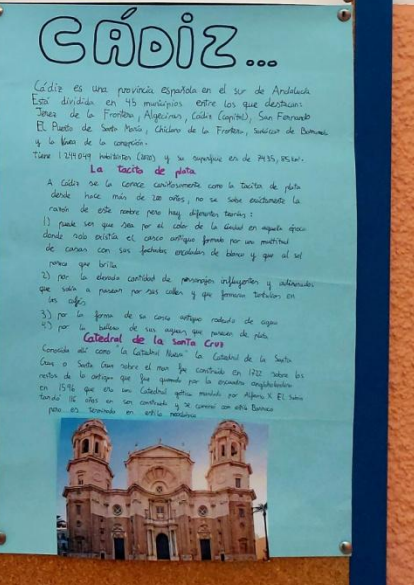 CÁDIZ...
Cádiz es una provincia española en el sur de Andalucía
Está dividida en 45 municipios entre los que destacan:
Jerez de la Frontera, Algeciras, Cádiz (capital), San Fernando
El Puerto de Santa María, Chiclana de la Frontera, Sanlúcar de Barrameda
y la línea de la concepción.
tiene 1.244.049 habitantes (2020) y su superficie es de 7435,85 km².
La Tacita de plata
A Cádiz se la conoce cariñosamente como la tacita de plata
desde hace más de 200 años, no se sabe exactamente la
razón de este nombre pero hay diferentes teorías:
1) puede ser que sea por el color de la ciudad en aquella época
donde solo existía el casco antiguo formado por una multitud
de casas con sus fachadas encaladas de blanco y que al sol
parece que brilla
2) por la elevada cantidad de personajes influyentes y adinerados
que salía a pasear por sus calles y que formaron tertulias en
los cafés
3) por la forma de su casco antiguo rodeado de agua
4) por la belleza de sus aguas que parecen de plata
Catedral de la Santa Cruz
Conocida allí como "la Catedral Nueva" la Catedral de la Santa
Cruz o Santa Cruz sobre el mar fue construida en 1722 sobre los
restos de la antigua que fue quemada por la escuadra angloholandesa
en 1596 que era una Catedral gótica mandada por Alfonso X. El
tardó 116 años en ser construida y se comenzó con estilo Barroco
pero es terminada en estilo neoclásico